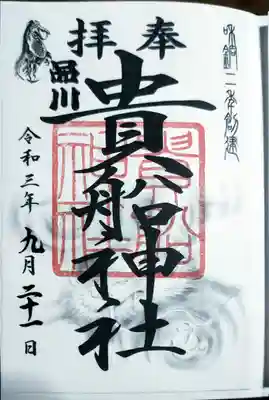 和銅二年創建
奉拝
品川
貴船神社
令和三年九月二十一日